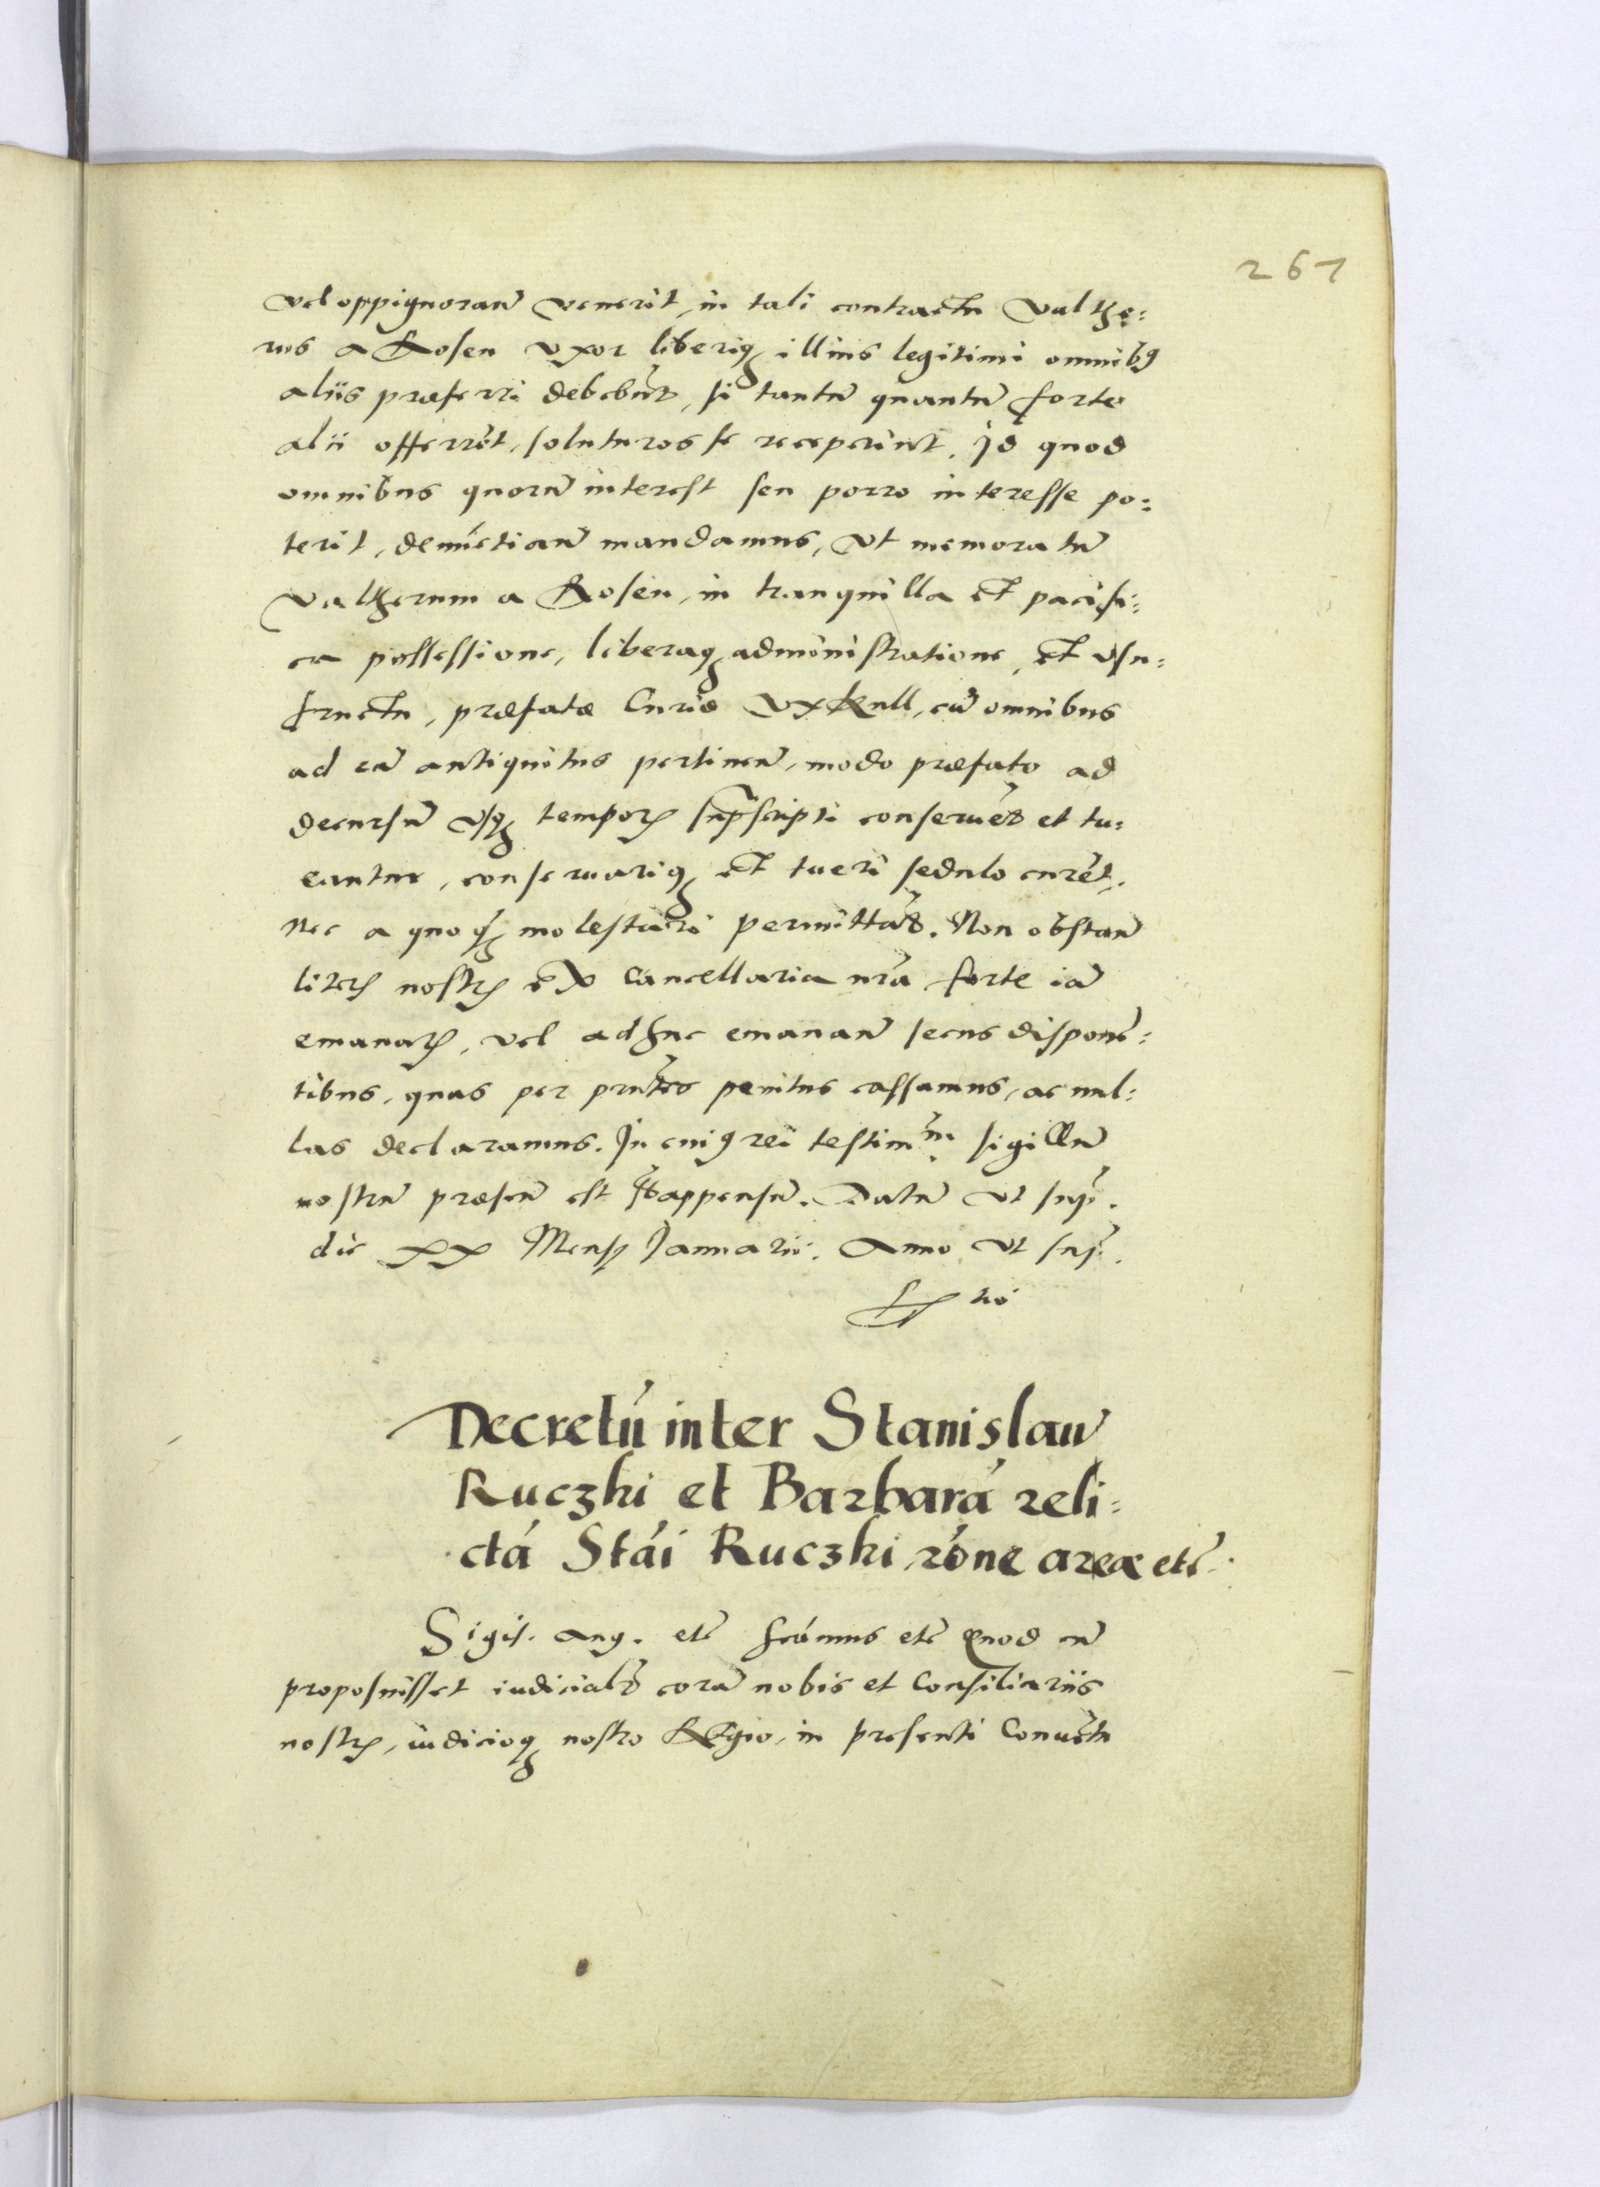 261
vel oppignoran̄ venerit, in tali contractu Valthe:
rus a Rosen uxor liberiq; illius legitimi omnib9
aliis præferri debebūt, si tantū quantū forte
alii offerrēt, soluturos se receperint. Id quod
omnibus quorū interest seu porro interesse po:
terit, denūctian̄ mandamus, ut memoratū
Valtherum a Rosen, in tranquilla et pacifi:
ca possessione, liberaq; administratione, et usu:
fructu, præfatæ Curiæ Uxkull, cū omnibus
ad eā antiquitus pertinen̄, modo præfato ad
decursū usq; temporis suprascripti conservēt et tu:
eantur, conservariq; et tueri sedulo curēt,
nec a quoq̄; molestari permittāt. Non obstan̄
literis nostris ex Cancellaria nr̄a forte iā
emanatis, vel adhuc emanan̄ secus disponē:
tibus, quas per prn̄tes penitus cassamus, ac nul:
las declaramus. In cui9 rei testim̄m sigillū
nostrū præsen̄ est s̄bappensū. Datū ut sup̄.
die XX Mensis Januarii. Anno ut sup̄.
Decretū inter Stanislaū
Ruczki et Barbarā reli:
ctā Stāi Ruczki rōne areæ etc̄.
Sigis. Aug. etc̄ ſcāmus etc̄ Quod cū
proposuisset iudicialr̄ corā nobis et Consiliariis
nostris, iudicioq; nostro Regio, in presenti Conuētu